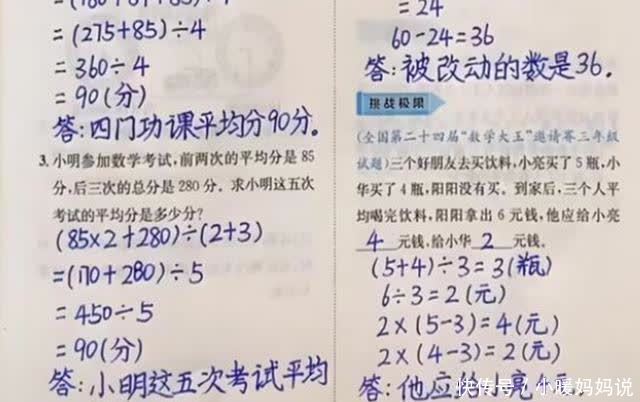 =(275+85)÷4
=360÷4
=90(分)
答:四门功课平均分90分。
3.小明参加数学考试,前两次的平均分是85
分,后三次的总分是280分。求小明这五次
考试的平均分是多少分?
(85×2+280)÷(2+3)
=(170+280)÷5
=450÷5
=90(分)
答:小明这五次考试平均
=24
60-24=36
答:被改动的数是36。
挑战极限
(全国第二十四届“数学大王”邀请赛三年级
试题)三个好朋友去买饮料,小亮买了5瓶,小
华买了4瓶,阳阳没有买。到家后,三个人平
均喝完饮料,阳阳拿出6元钱,他应给小亮
4元钱,给小华2元钱。
(5+4)÷3=3(瓶)
6÷3=2(元)
2×(5-3)=4(元)
2×(4-3)=2(元)
答:他应给小亮4元
快传号/小暖妈妈说